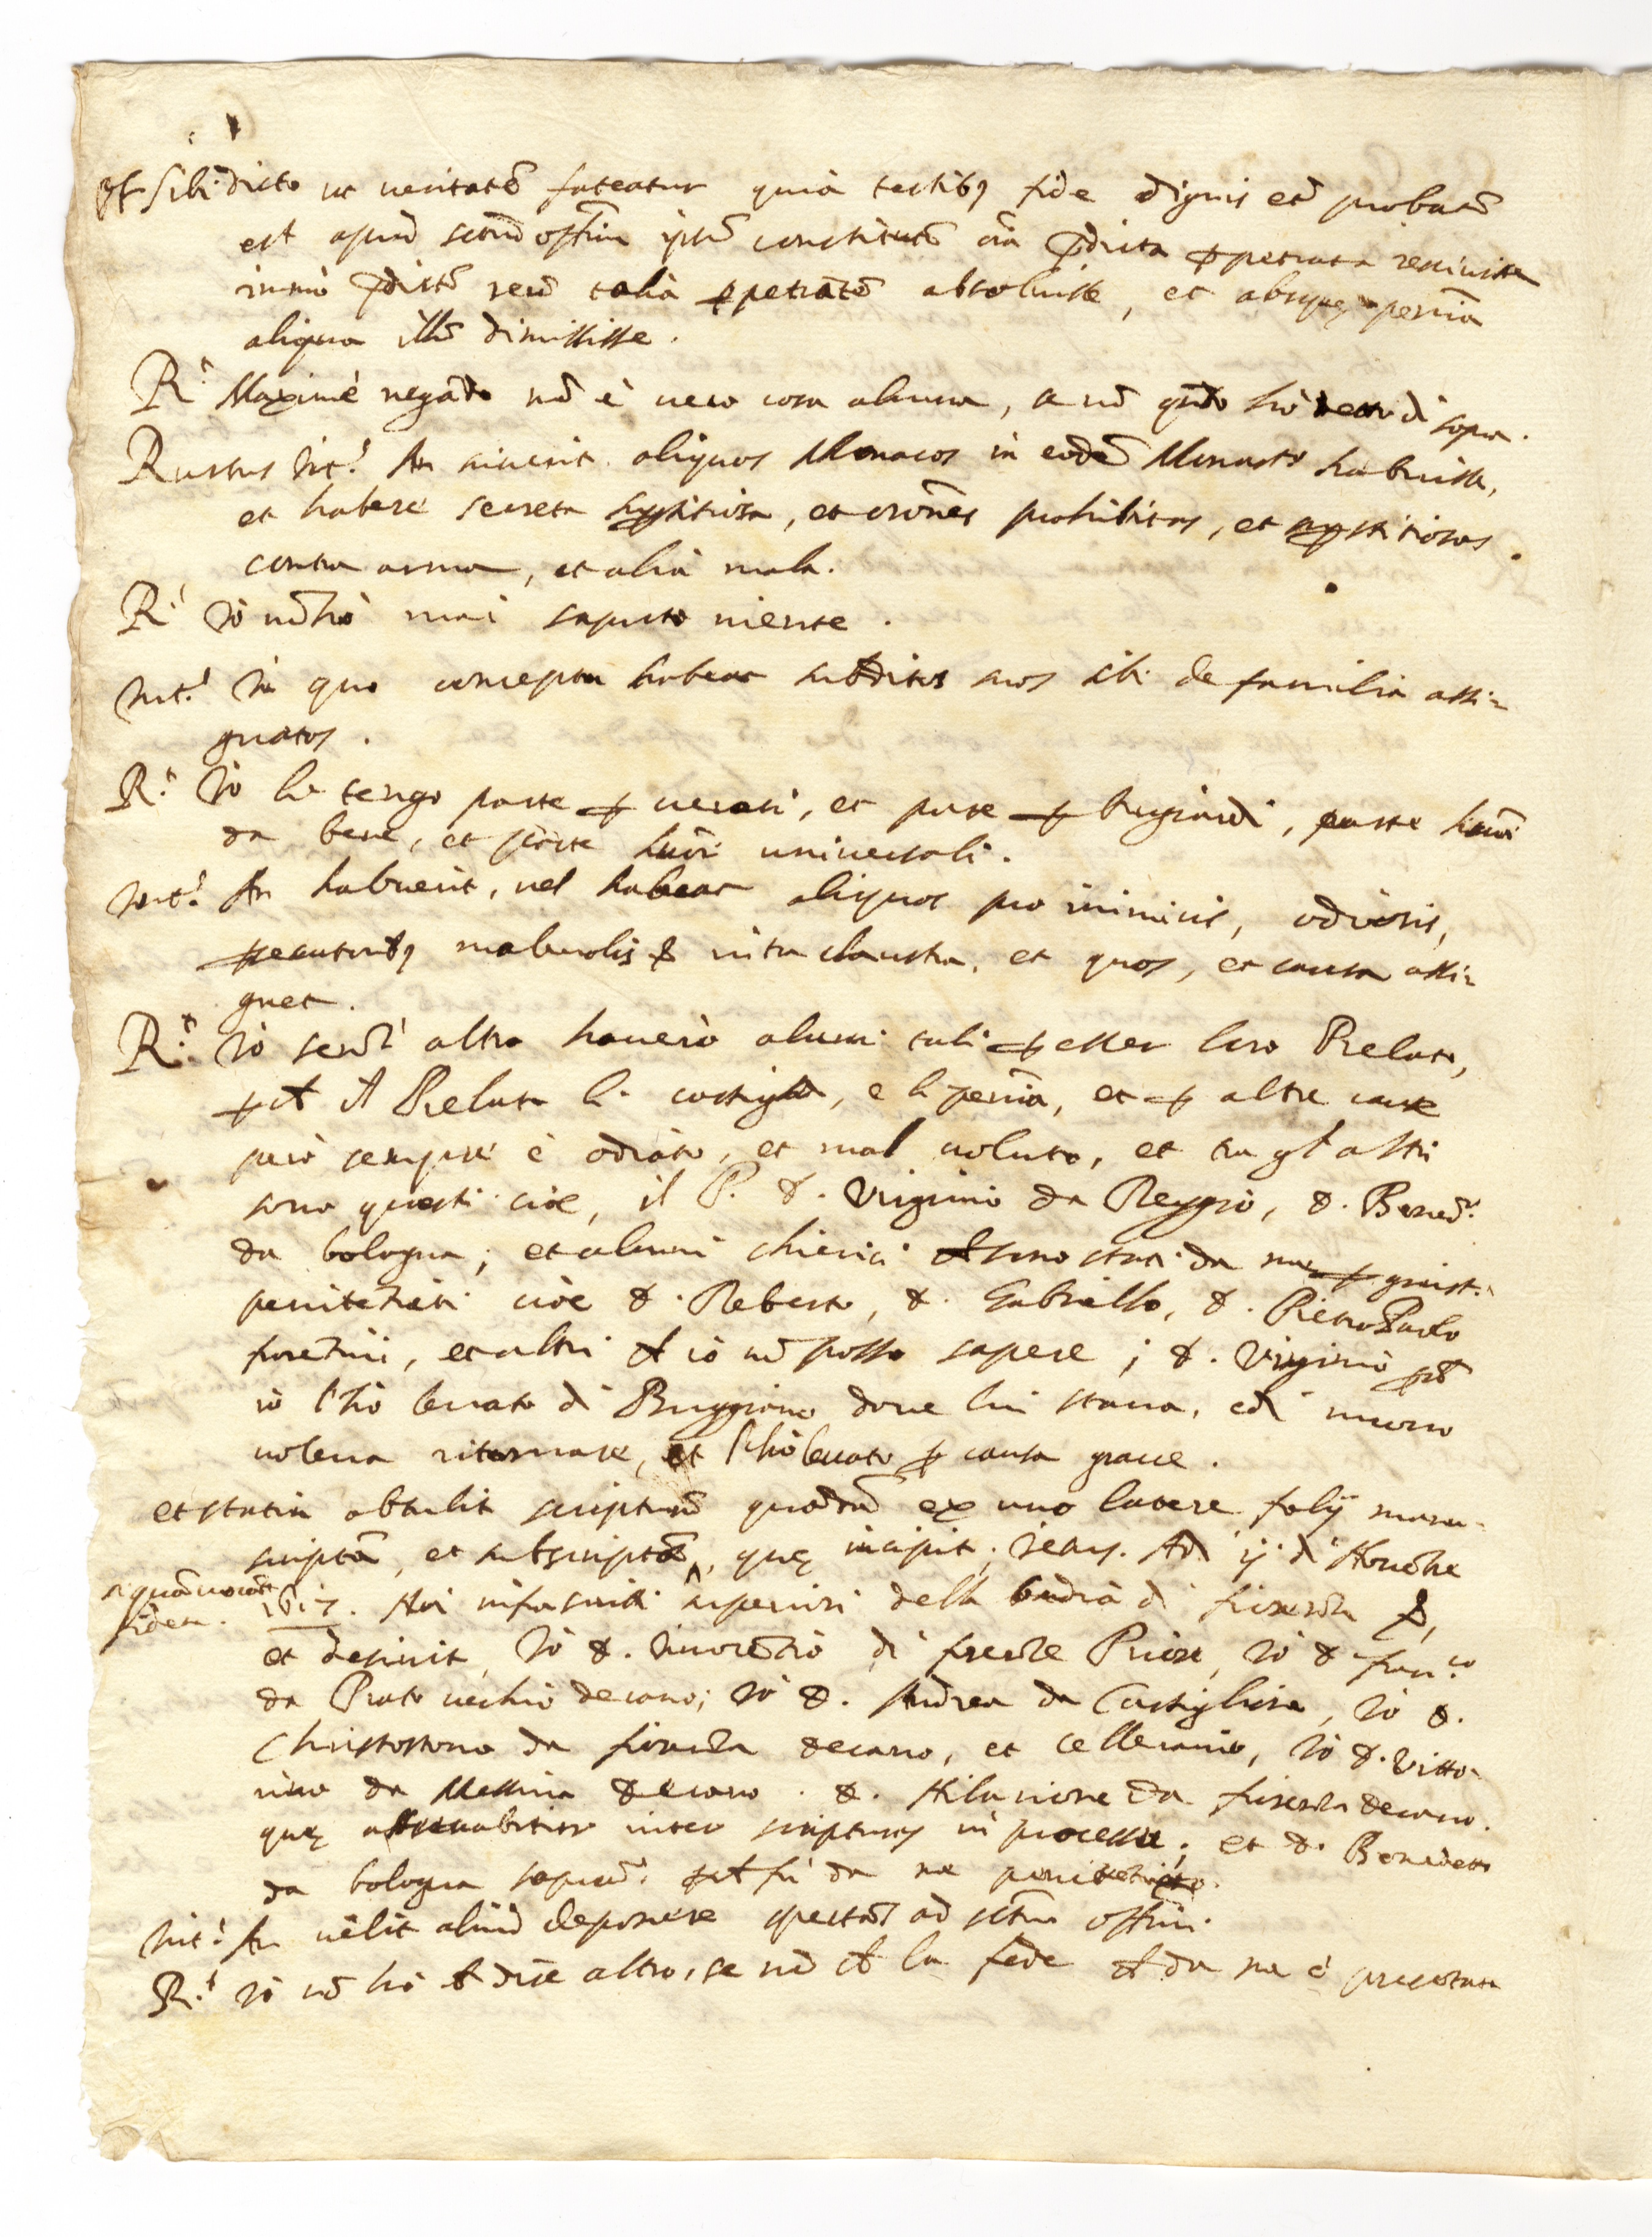 Et sibi dicto ut veritatē fateatur quia testibꝯ fide dignis eē probatū
est apud sctūm offm ipsū constitutū oīa p̄dicta ꝑpetrata rescivisse
immo p̄dictū reū talia ꝑpetratē absolvisse, et absqꝫ peniā
aliqua illū dimississe.
R.t Maximè negādo nō è vero cosa alcuna, se nō qñto hò detto di sopra.
Rursus Int.s An sciverit aliquos Monacos in eodē Monastº habuisse,
et habere secreta suꝑstitiosa, et orōnes prohibitas, et suꝑstitiosas
contra arma, et alia mala.
R.t Iò nō hò mai saputo niente.
Int.s In quo conceptu habeat subditos suos sibi de familia assi=
gnatos.
R.t Iò li tengo parte ꝑ veraci, et parte ꝑ bugiardi, parte huōi
da bene, et parte huōi universali.
Int.s An habuerit, vel habeat aliquos pro inimicis, odiosis,
ꝑsecutoribꝯ malevolis & intra claustra, et quos, et causa assi=
gnet.
R.t Iò senz' altro haverò alcuni tali ꝑ esser loro Prelato,
ꝑch il Prelato li castiga, e li peniā, et ꝑ altre cause
però sempre è odiato, et mal voluto, et tra gl' altri
sono questi cioè, il P. D. Virginio da Reggio, D. Bened.º
da bologna; et alcuni chierici ch sono stati da me ꝑ giust.ª
penitētiati cioè D. Roberto, D. Gabriello, D. Pietro Paolo
forētini, et altri ch iò nō posso sapere; D. Virginio ꝑch
iò l' hò levato di Buggiano dove lui stava, e di nuovo
voleva ritornare, et l' hò levato ꝑ causa grave.
et statim obtulit scripturā quādā ex uno latere folij manu
scriptā, et subscriptā, quę incipit; Iesus. Adi ij di Novēbre
si quā meretr
fidem.
1617. Noi infrascritti superiori della badia di firenza &,
et desinit, Iò D. Innocētio di firēze Priore, Iò D. fran.co
da Prato vechio decano; Iò D. Andrea da Castiglione, Iò D.
Christostomo da firēza decano, et Cellerario, Iò D. Vitto
rino da Messina decano. D. Hilarione da firenza decano.
quę assecuabitur inter scripturas in processu; et D. Benedetto
da bologna sopradº. ꝑch fù da me penitētiato.
Int.s An velit aliud deponere spectās ad sctūm offm.
R.t Iò nō hò ch dire altro, se nō ch la fede ch da me è presētata